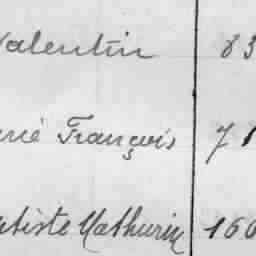 Valentin 83
rené François 71
atiste Mathurin 166